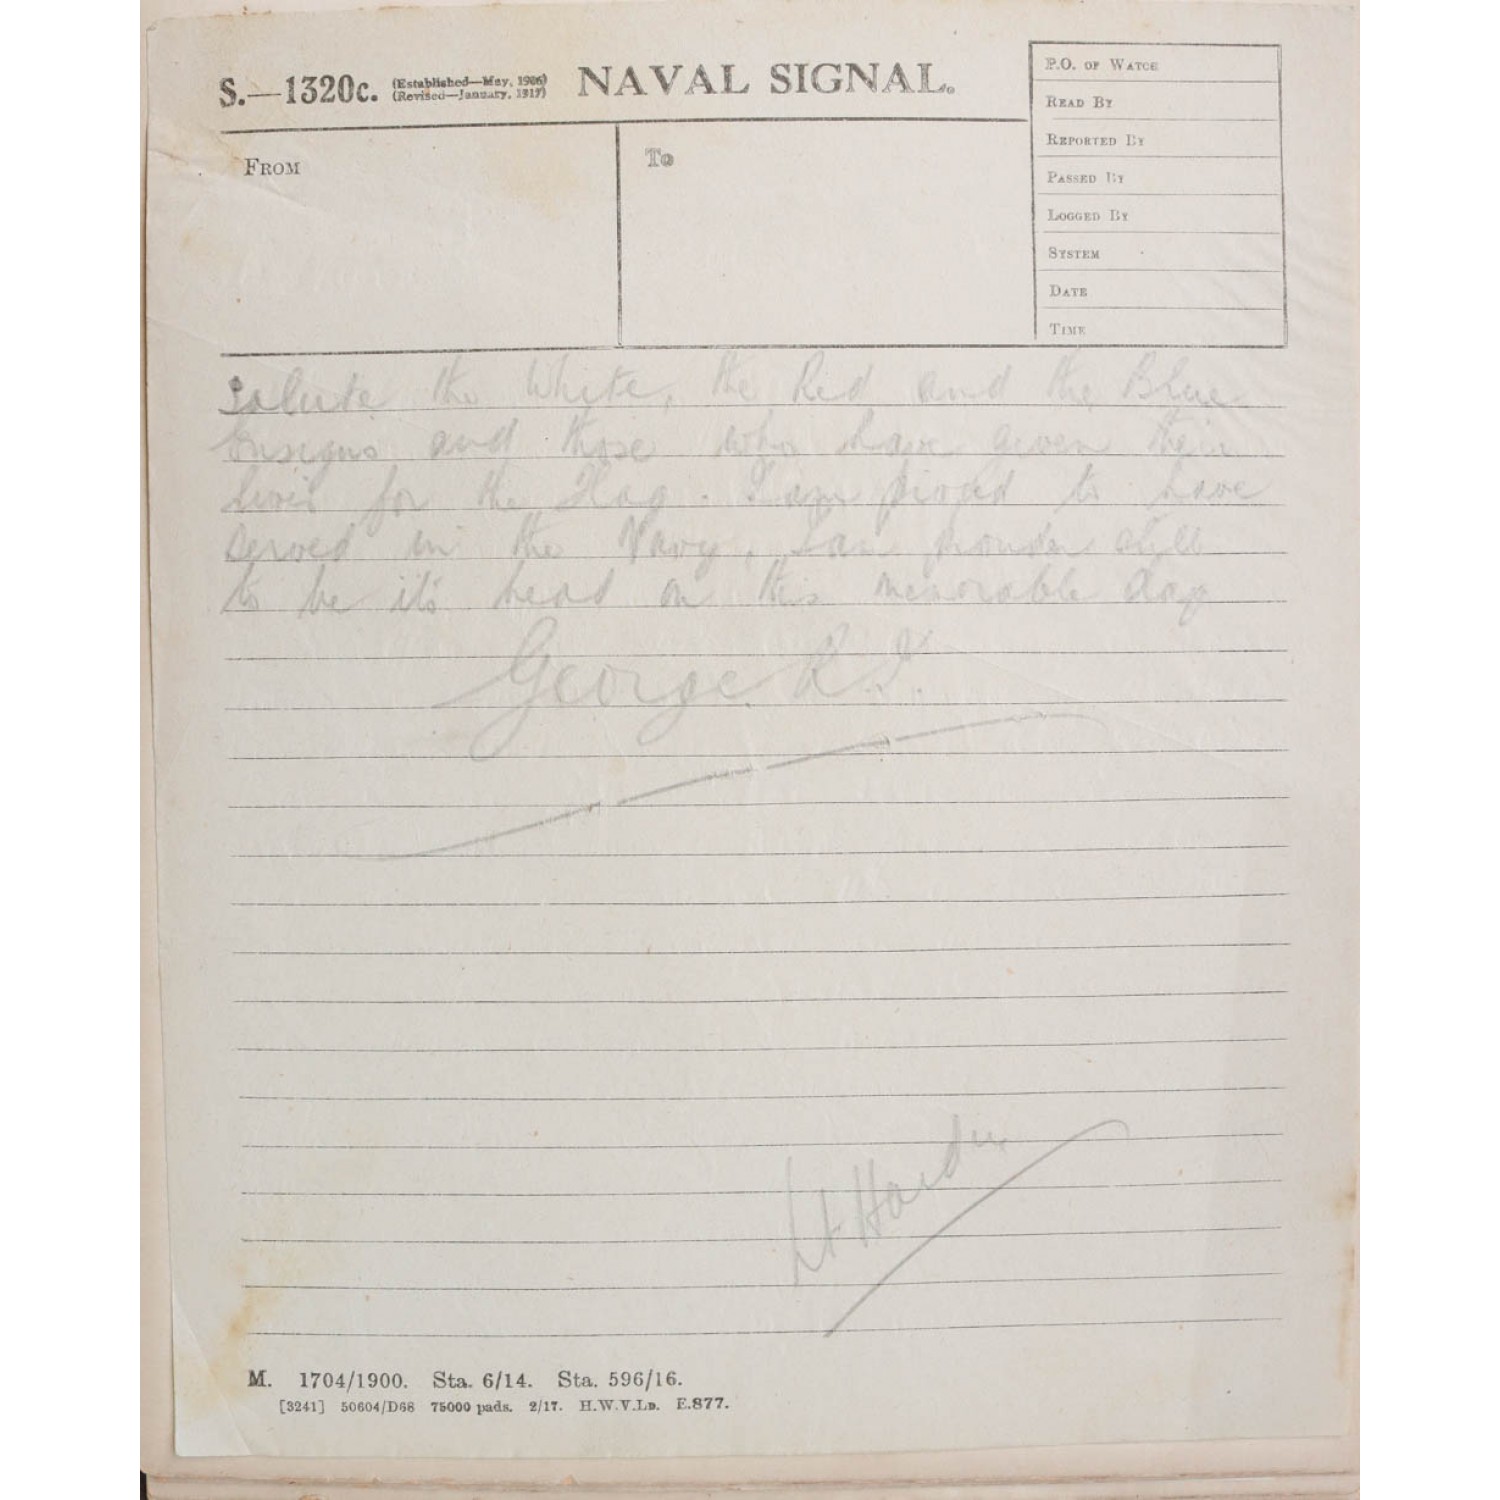 S.—1320c. (Established—May, 1906)
(Revised—January, 1917)
NAVAL SIGNAL.
P.O. OF WATCH
READ BY
REPORTED BY
PASSED BY
LOGGED BY
SYSTEM
DATE
TIME
FROM
To
Salute the White, the Red and the Blue
Ensigns and those who have given their
lives for the Flag. I am proud to have
served in the Navy, I am prouder still
to be it's head on this memorable day
George. R.I.
M. 1704/1900. Sta. 6/14. Sta. 596/16.
[3241] 50604/D68 75000 pads. 2/17. H.W.V.LD. E.877.